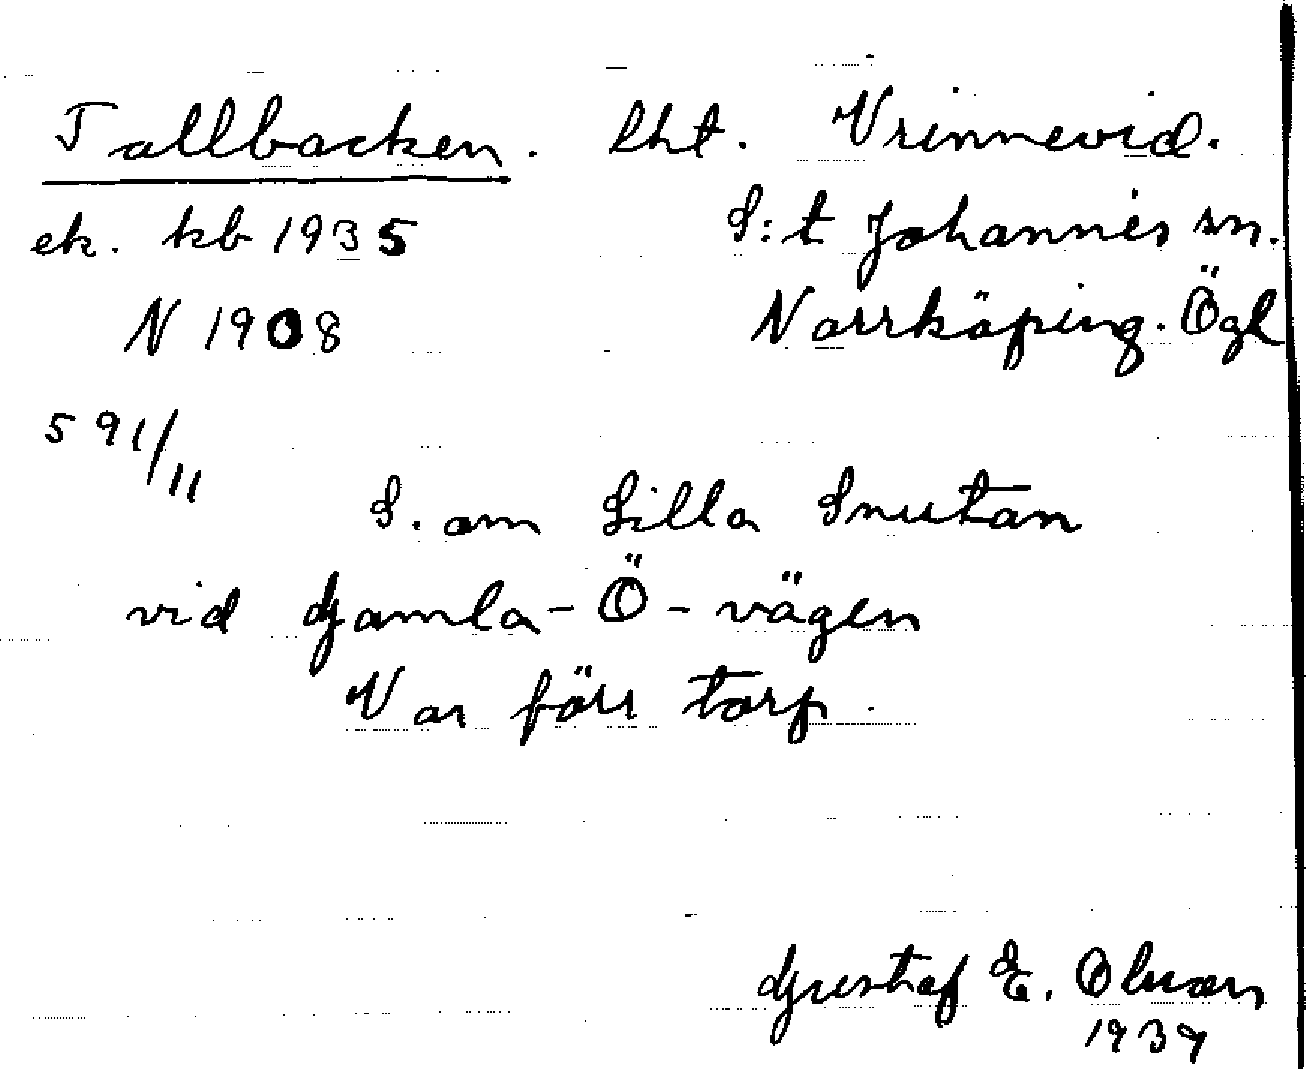 Tallbacken. lht. Vrinnevid.
ek. kb 1935 S:t Johannes sn.
N 1908 Norrköping. Ögl
591/11
S. om Lilla Snutan
vid Gamla-Ö-vägen
Var förr torp.
Gustaf E. Olsson
1939